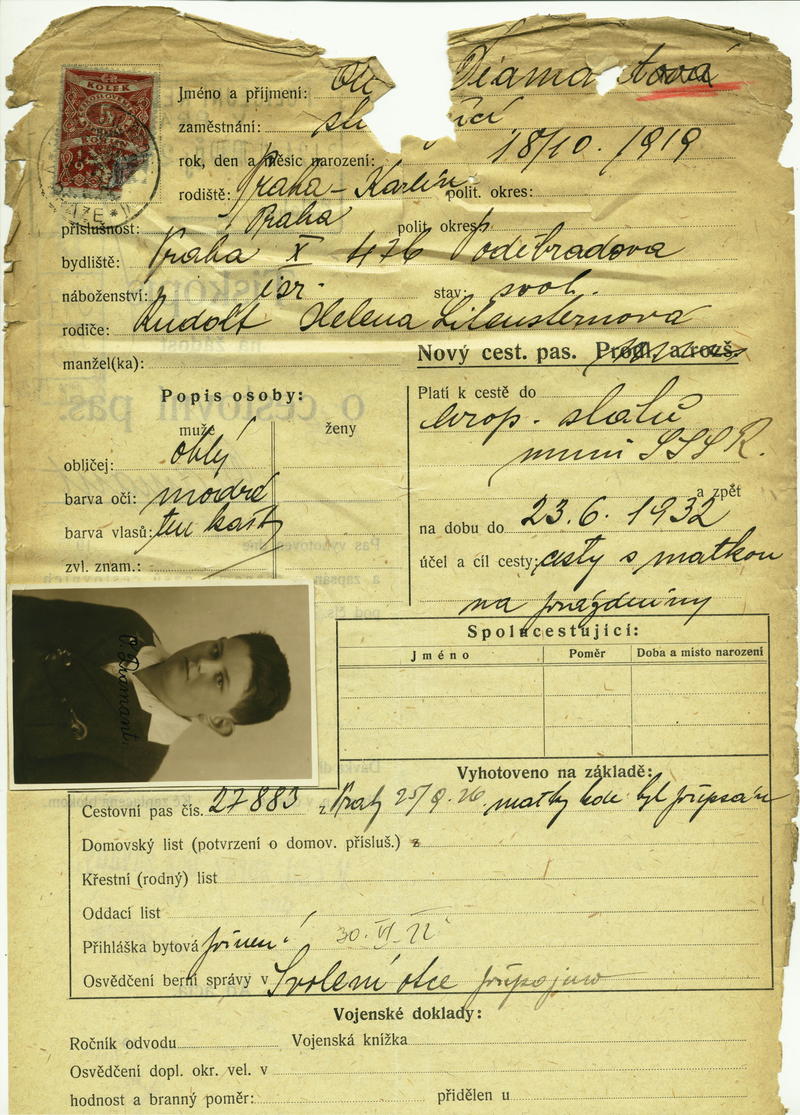 KOLEK
Jméno a příjmení:
zaměstnání:
rok, den a měsíc narození: 18/10. 1919
rodiště: Praha - Karlín polit. okres:
příslušnost: Praha polit. okres:
bydliště: Praha X 476 Poděbradova
náboženství: isr. stav: svob.
rodiče: Rudolf Helena
manžel(ka):
Nový cest. pas. Prodl. a rozš.
Popis osoby:
muže ženy
obličej: oblý
barva očí: modré
barva vlasů:
zvl. znam.:
Platí k cestě do
evrop. států
mimo SSSR.
a zpět
na dobu do 23.6. 1932
účel a cíl cesty: cesty s matkou
na prázdniny
Spolucestující:
Jméno Poměr Doba a místo narození
Diamant
Vyhotoveno na základě:
Cestovní pas čís. 27883 z matky kde byl připsán
Domovský list (potvrzení o domov. přísluš.) z
Křestní (rodný) list
Oddací list
Přihláška bytová
Osvědčení berní správy v Svolení otce
Vojenské doklady:
Ročník odvodu Vojenská knížka
Osvědčení dopl. okr. vel. v
hodnost a branný poměr: přidělen u